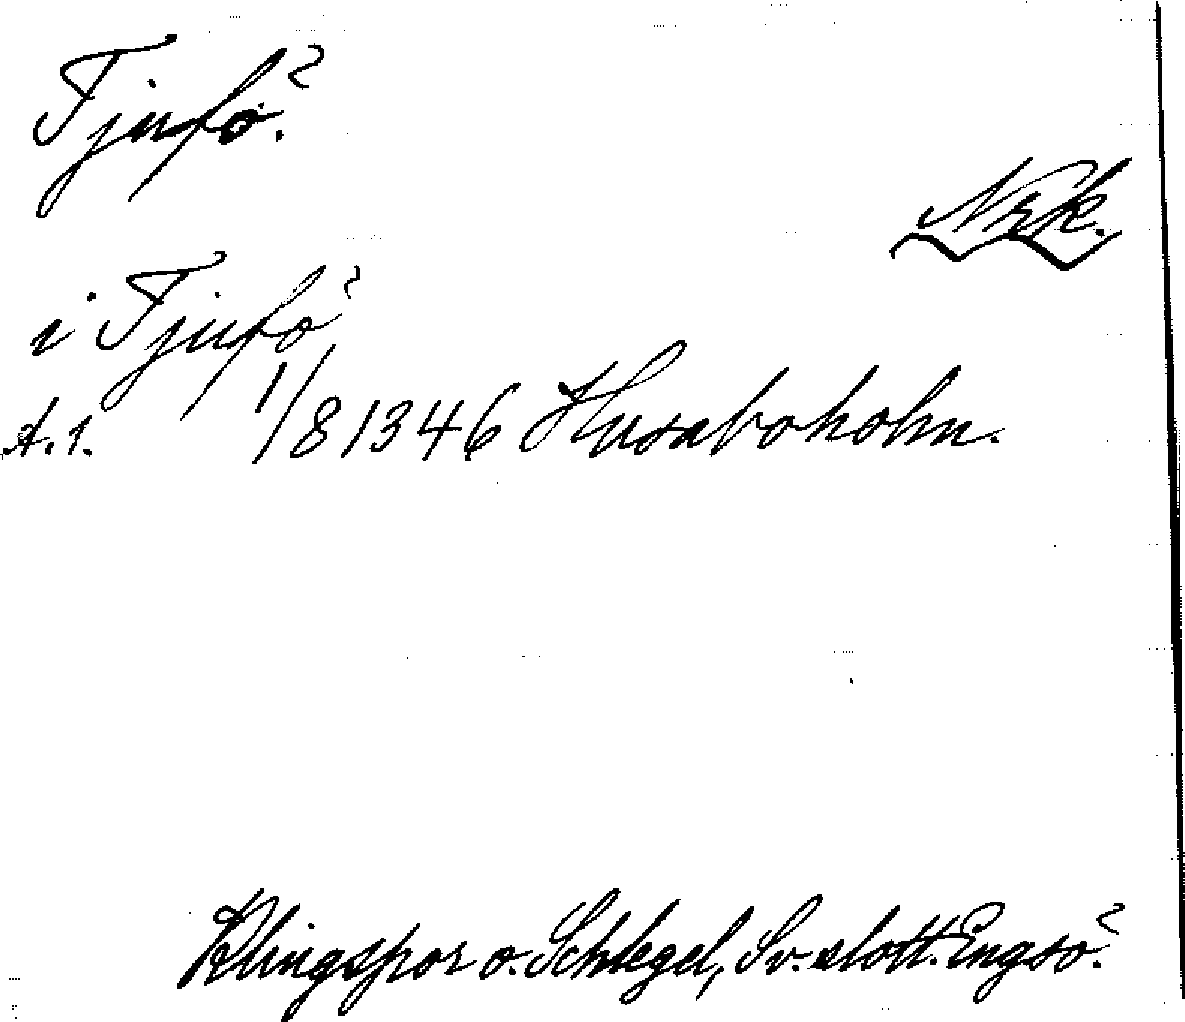 Tjufö.
Nrk.
i Tjufö
A. 1. 1/8 1346 Husaboholm.
Klingspor o. Schlegel, Sv. slott. Engsö.